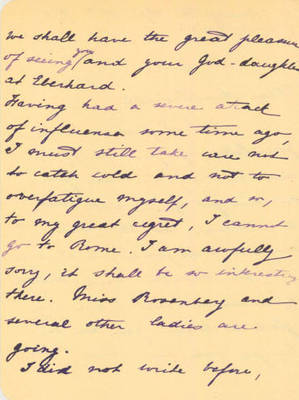 we shall have the great pleasure
of seeing you and your God-daughter
at Eberhard.
Having had a severe attack
of influensa some time ago,
I must still take care not
to catch cold and not to
overfatigue myself, and so,
to my great regret, I cannot
go to Rome. I am awfully
sorry, it shall be so interesting
there. Miss Rosenberg and
several other ladies are
going.
I did not write before,